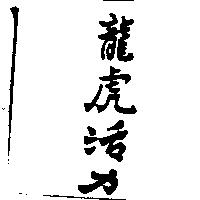 龍虎活力